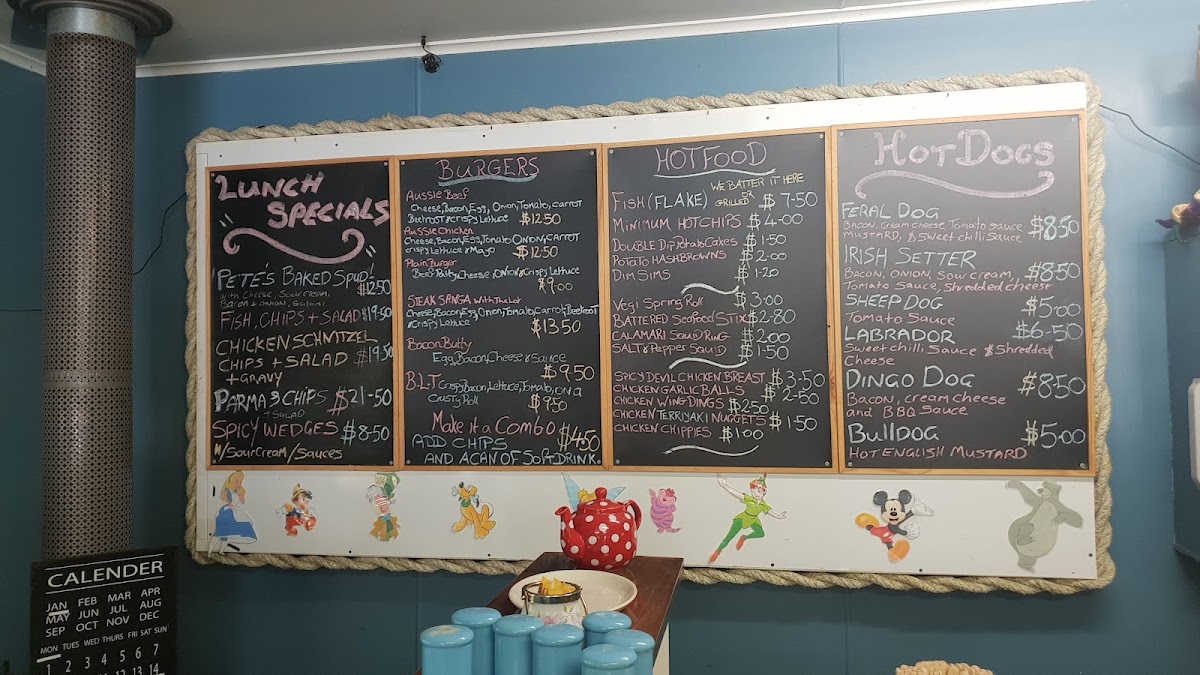 LUNCH
SPECIALS
"PETE'S BAKED SPUD'
WITH CHEESE, SOUR CREAM,
BACON & ONION, $12.50
FISH, CHIPS + SALAD $19.50
CHICKEN SCHNITZEL
CHIPS + SALAD $19.50
+ GRAVY
PARMA & CHIPS $21-50
+ SALAD
SPICY WEDGES $8-50
W/SOUR CREAM/SAUCES
BURGERS
AUSSIE BEEF
Cheese, Bacon, Egg, Onion, Tomato, carrot
Beetroot & crispy Lettuce $12.50
AUSSIE CHICKEN
Cheese, Bacon, Egg, Tomato, Onion, CARROT
crispy Lettuce & Mayo $12.50
Plain Burger
Beef Patty, Cheese, Onion & Crispy Lettuce
$9.00
STEAK SANGA WITH THE LOT
Cheese, Bacon, Egg, Onion, Tomato, Carrot, Beetroot
& Crispy Lettuce $13.50
Bacon Butty
Egg, Bacon, Cheese & Sauce
$9.50
B.L.T Crispy Bacon, Lettuce, Tomato, on a
Crusty Roll $9.50
Make it a COMBO $4.50
ADD CHIPS
AND A CAN OF SOFT DRINK
HOTFOOD
WE BATTER IT HERE
FISH (FLAKE) OR GRILLED $7-50
MINIMUM HOT CHIPS $4-00
DOUBLE Dip Potato Cakes $1-50
POTATO HASHBROWNS $2-00
DIM SIMS $1-20
Vegi Spring Roll $3-00
BATTERED Seafood STIX $2-80
CALAMARI SQUID RING $2-00
SALT & Pepper SQUID $1-50
SPICY DEVIL CHICKEN BREAST $3-50
CHICKEN GARLIC BALLS $2-50
CHICKEN WING DINGS $2-50
CHICKEN TERRIYAKI NUGGETS $1-50
CHICKEN CHIPPIES $1-00
HOTDOGS
FERAL DOG $8.50
BACON, cream cheese, Tomato sauce
MUSTARD, & Sweet chilli Sauce
IRISH SETTER
BACON, ONION, SOUR CREAM, $8-50
Tomato Sauce, Shredded cheese
SHEEP DOG $5-00
Tomato Sauce
LABRADOR $6-50
Sweet chilli Sauce & Shredded
Cheese
DINGO DOG $8-50
Bacon, cream cheese
and BBQ Sauce
BullDOG $5-00
HOT ENGLISH MUSTARD
CALENDER
JAN FEB MAR APR
MAY JUN JUL AUG
SEP OCT NOV DEC
MON TUES WED THURS FRI SAT SUN
1 2 3 4 5 6 7
11 12 13 14